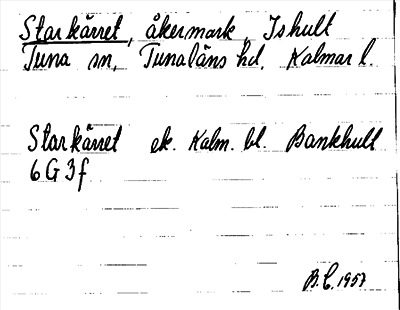 Starkärret, åkermark, Ishult
Tuna sn, Tunaläns hd. Kalmar l.
Starkärret ek. Kalm. bl. Bankhult
6 G 3 f
B.C. 1957